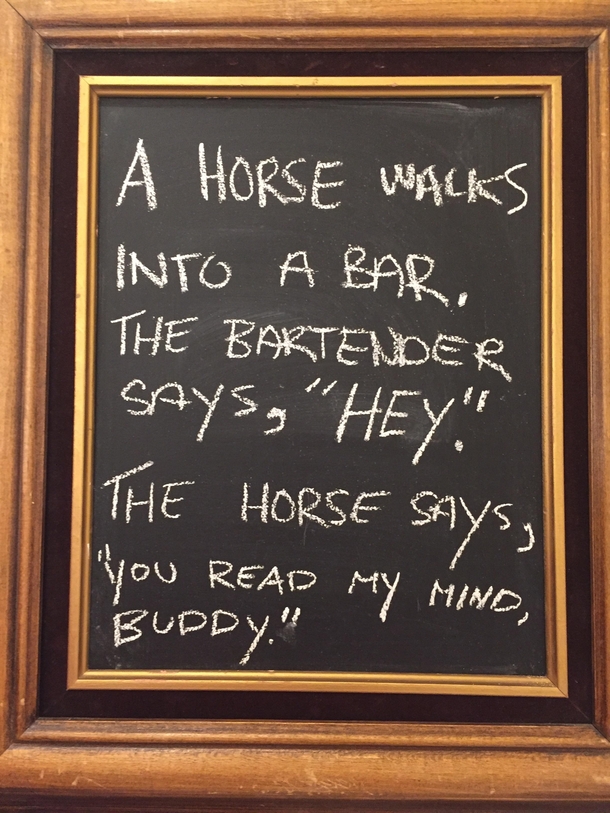 A HORSE WALKS
INTO A BAR.
THE BARTENDER
SAYS, "HEY."
THE HORSE SAYS,
"YOU READ MY MIND,
BUDDY."